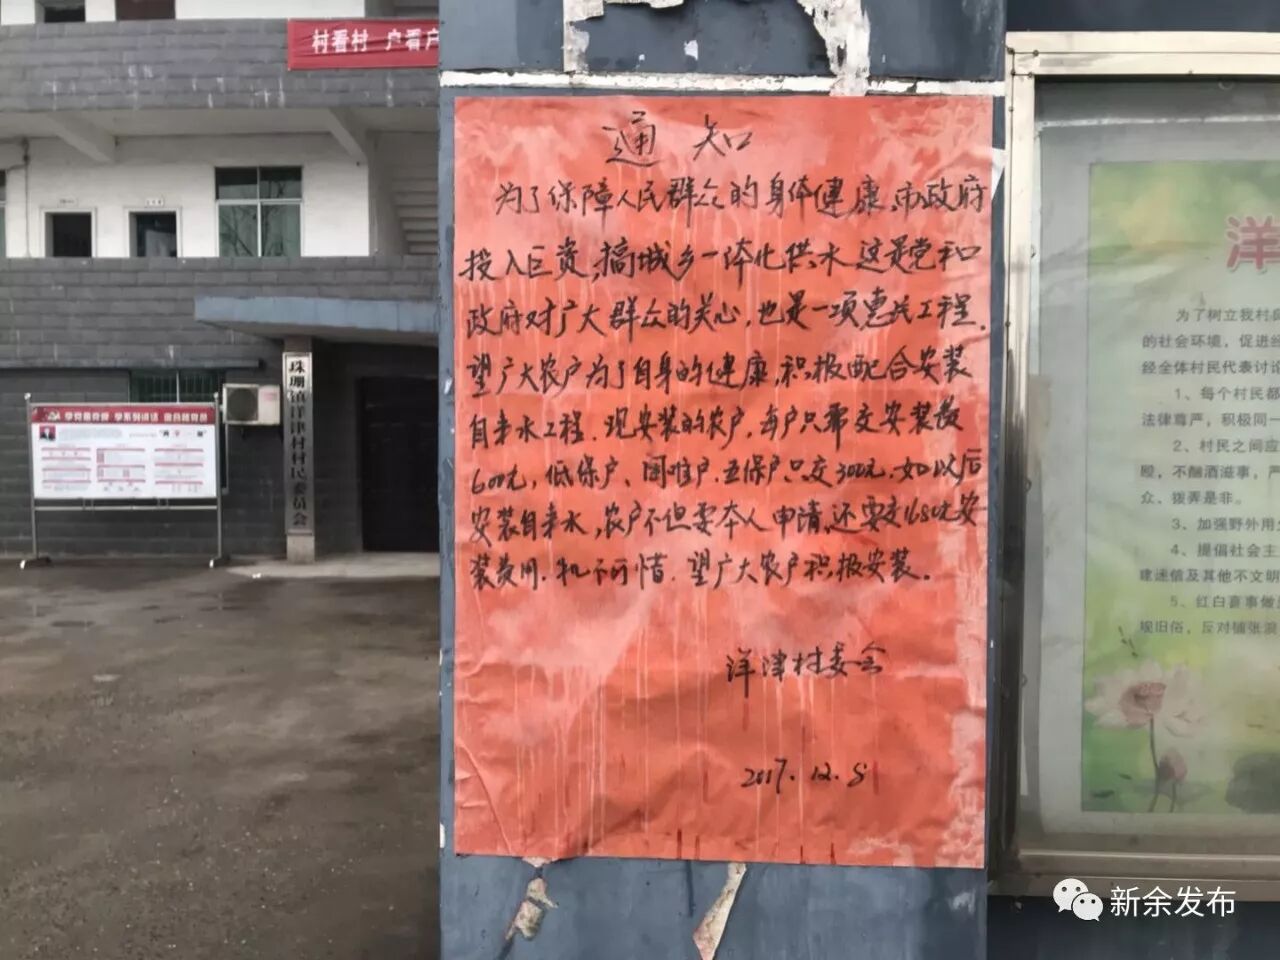 村看村 户看户
珠珊镇洋津村村民委员会
通知
为了保障人民群众的身体健康,市政府
投入巨资,搞城乡一体化供水这是党和
政府对广大群众的关心,也是一项惠民工程.
望广大农户为了自身的健康,积极配合安装
自来水工程.现安装的农户,每户只需交安装费
600元,低保户、困难户.五保户只交300元.如以后
安装自来水,农户不但要本人申请,还要交1680元安
装费用.机不可惜.望广大农户积极安装.
洋津村委会
2017.12.8
洋
为了树立我村
的社会环境,促进经
经全体村民代表讨论
1、每个村民都
法律尊严,积极同一
2、村民之间应
殴,不酗酒滋事,严
众、拨弄是非。
3、加强野外用
4、提倡社会主
建迷信及其他不文明
5、红白喜事做
规旧俗,反对铺张浪
新余发布